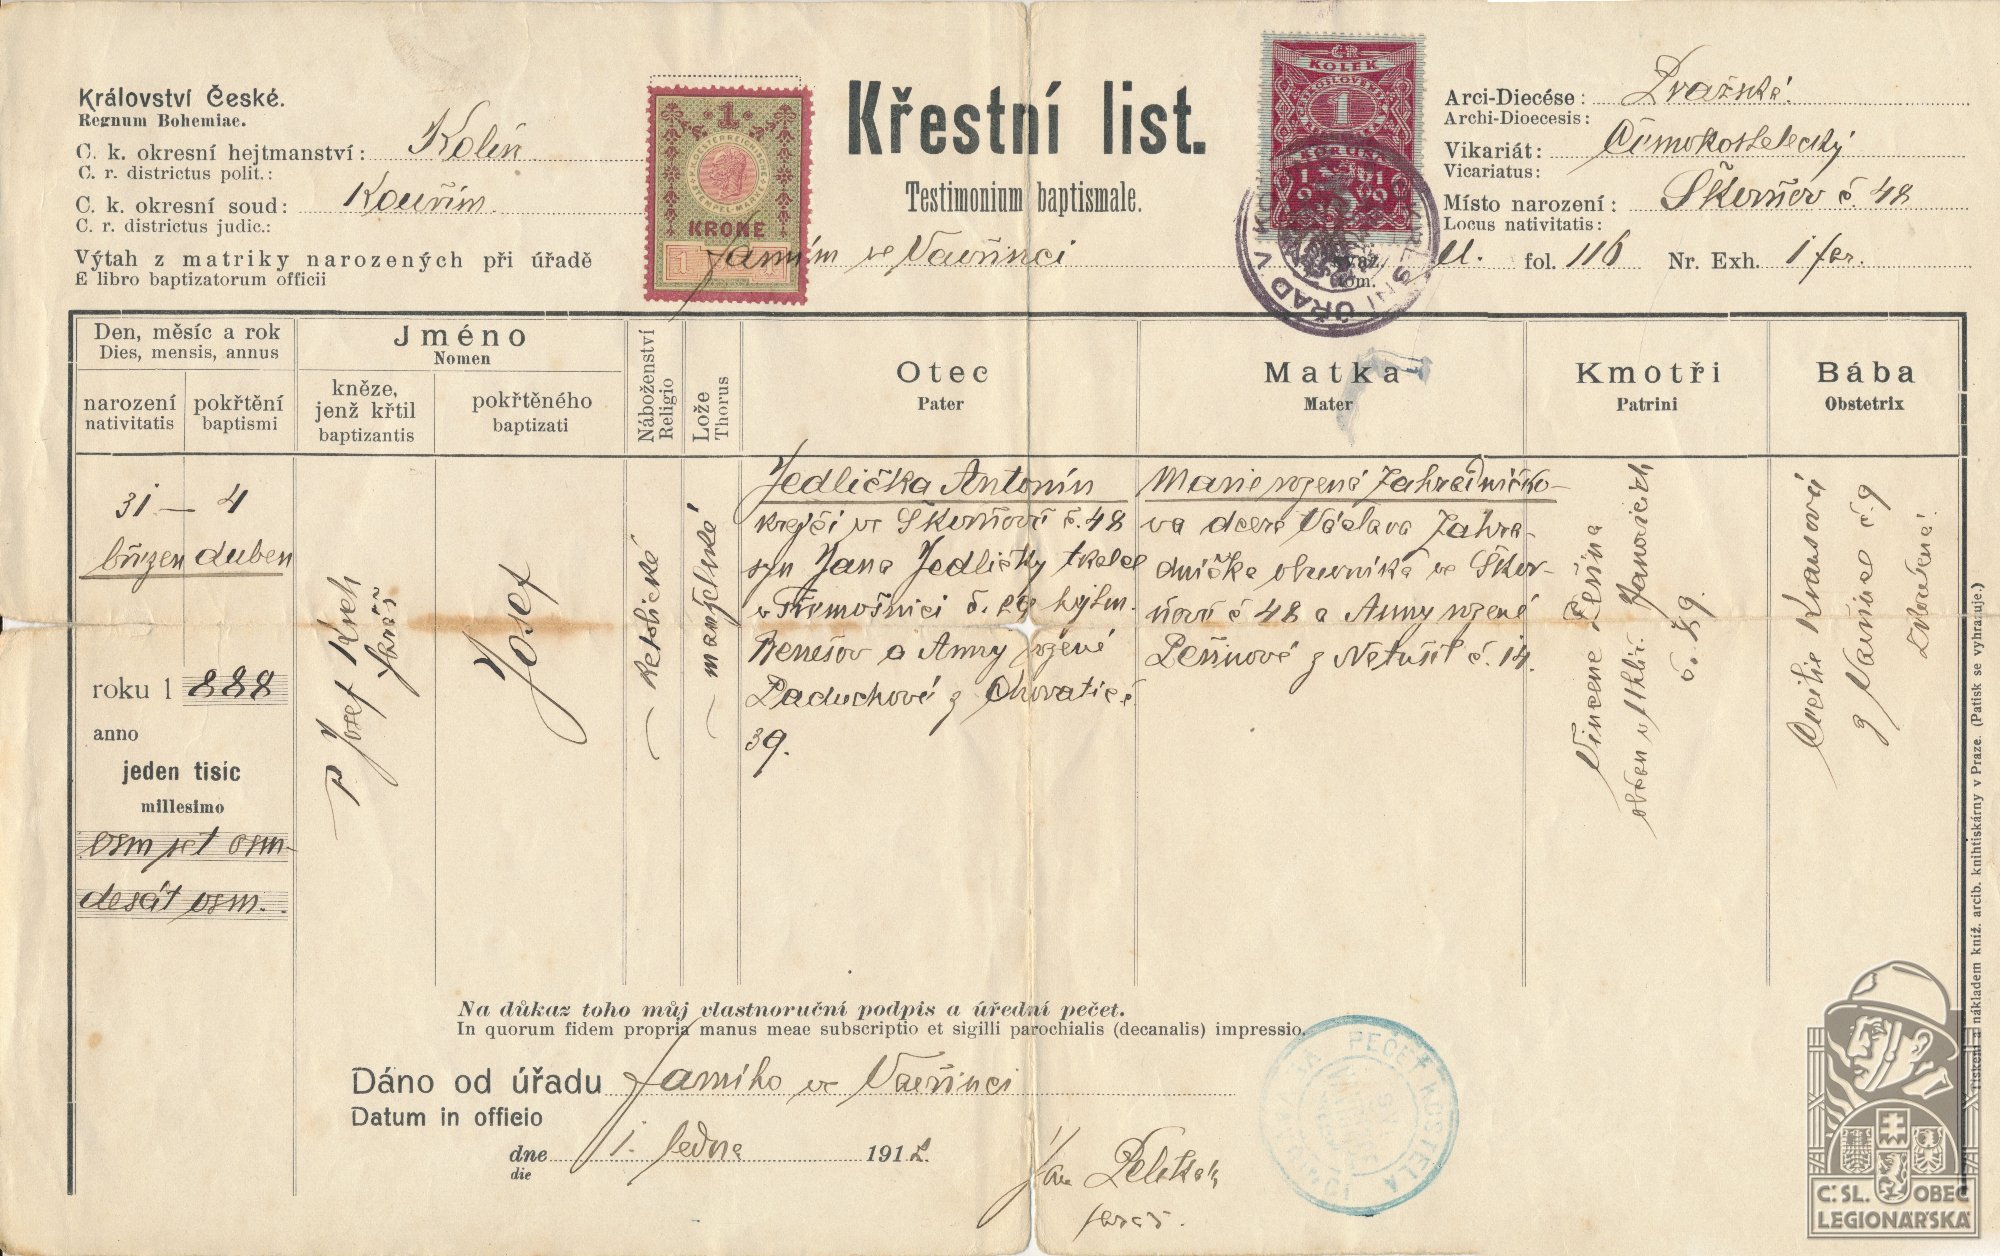 Království České.
Regnum Bohemiae.
C. k. okresní hejtmanství: Kolín
C. r. districtus polit.:
C. k. okresní soud: Kouřim
C. r. districtus judic.:
Výtah z matriky narozených při úřadě farním ve Vavřinci
E libro baptizatorum officii
1
KRONE
1
Křestní list.
Testimonium baptismale.
ČR
KOLEK
1
Arci-Diecése: Pražská.
Archi-Dioecesis:
Vikariát: Černokostelecký
Vicariatus:
Místo narození: Škvrňov č. 48
Locus nativitatis:
fol. 116 Nr. Exh. 1
Den, měsíc a rok
Dies, mensis, annus
narození
nativitatis
pokřtění
baptismi
Jméno
Nomen
kněze,
jenž křtil
baptizantis
pokřtěného
baptizati
Náboženství
Religio
Lože
Thorus
Otec
Pater
Matka
Mater
Kmotři
Patrini
Bába
Obstetrix
31 – 4
březen duben
roku 1888
anno
jeden tisíc
millesimo
osm set osm-
desát osm.
P. Josef
farář
Josef
katolické
manželské
Jedlička Antonín
krejčí ve Škvrňově č. 48
syn Jana Jedličky tkalce
v Třemošnici č. 29 hejtm.
Benešov a Anny rozené
Paduchové z Chovatic č
39.
Marie rozená Zahradníčko-
va dcera Václava Zahra-
dníčka obuvníka ve Škvr-
ňově č 48 a Anny rozené
Pešinové z Netušil č. 14.
Vincenc Pešina
Janovicích
č. 29.
Cecilie Krausová
z Vavřince č. 9
zkoušená
Na důkaz toho můj vlastnoruční podpis a úřední pečeť.
In quorum fidem propria manus meae subscriptio et sigilli parochialis (decanalis) impressio.
Dáno od úřadu farního ve Vavřinci
Datum in officio
dne 1. ledna 1912
die
Jan
farář.
PEČEŤ KOSTELA
Tiskem a nákladem kníž. arcib. knihtiskárny v Praze. (Patisk se vyhražuje.)
Č. SL. OBEC
LEGIONÁŘSKÁ